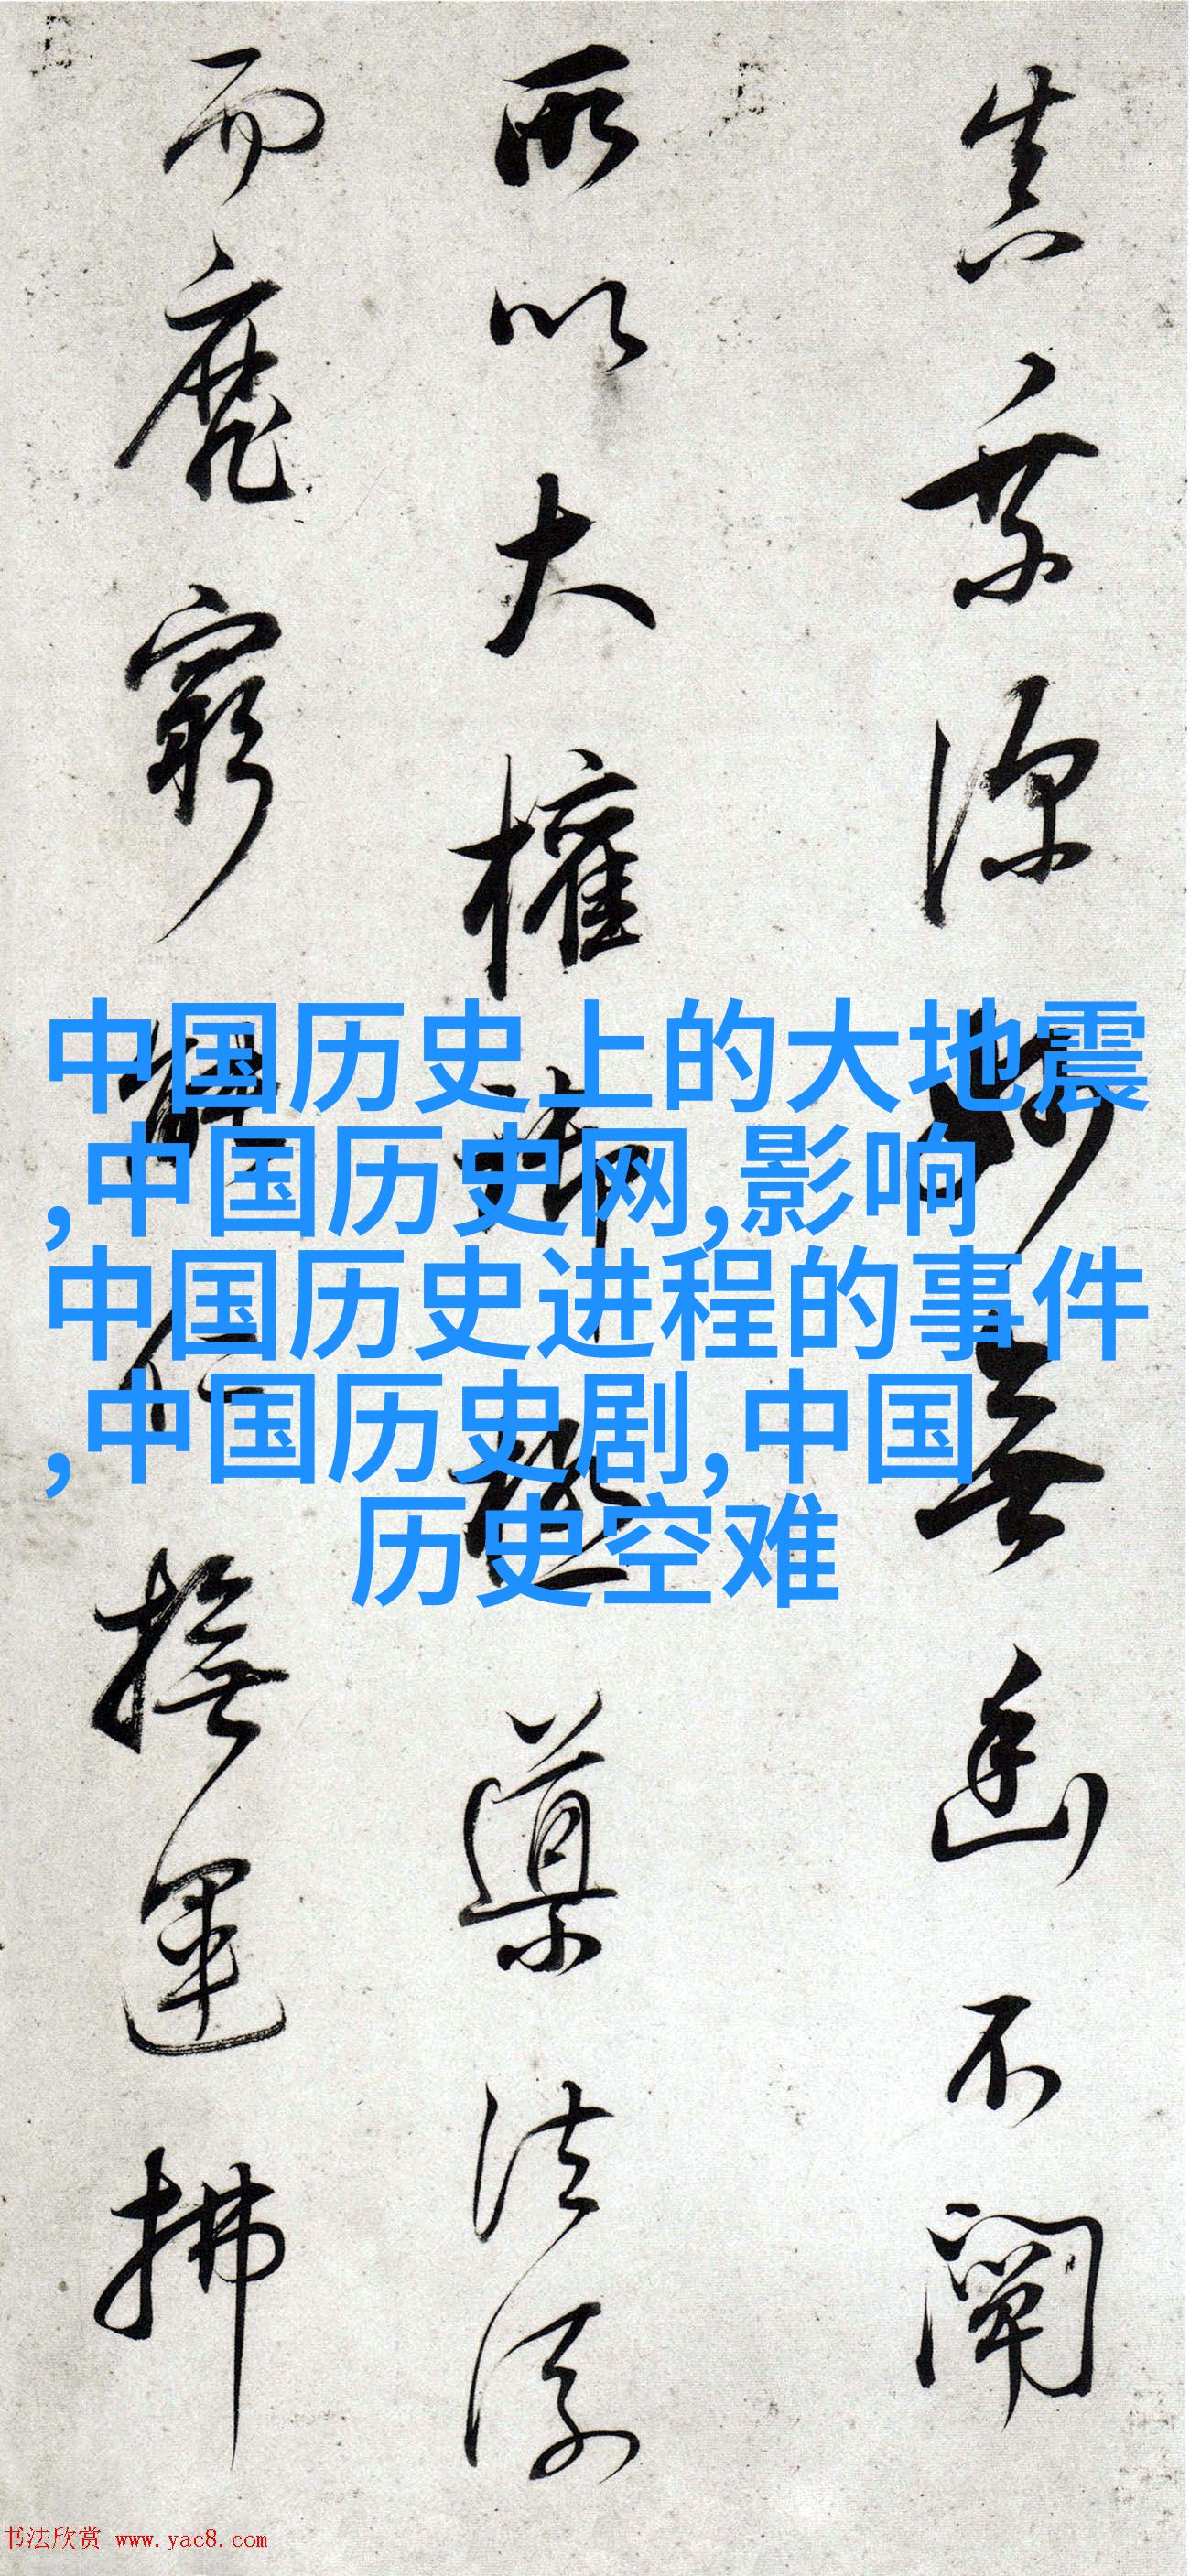 真 妙無幽不闡
所以大權御極導法流
而靡窮能仁撫運拂
中国历史上的大地震
,中国历史网,影响
中国历史进程的事件
,中国历史剧,中国
历史空难
书法欣赏 www.yac8.com